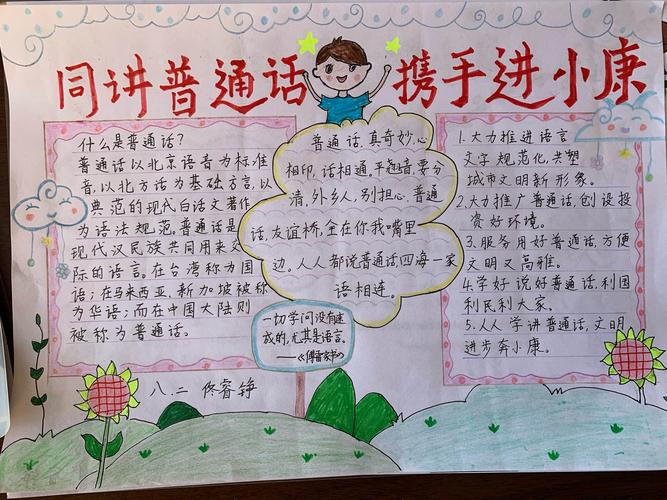 同讲普通话 携手进小康
什么是普通话?
普通话以北京语音为标准
音,以北方话为基础方言,以
典范的现代白话文著作
为语法规范。普通话是
现代汉民族共同用来交
际的语言。在台湾称为国
语;在马来西亚、新加坡被称
为华语;而在中国大陆则
被称为普通话。
普通话,真奇妙,心
相印,话相通,平翘音,要分
清,外乡人,别担心,普通
话,友谊桥,全在你我嘴里
边。人人都说普通话,四海一家
语相连。
一切学问没有速
成的,尤其是语言。
——《傅雷家书》
1.大力推进语言
文字规范化,共塑
城市文明新形象。
2.大力推广普通话,创设投
资好环境。
3.服务用好普通话,方便
文明又高雅。
4.学好说好普通话,利国
利民利大家。
5.人人学讲普通话,文明
进步奔小康。
八.二 佟睿铮